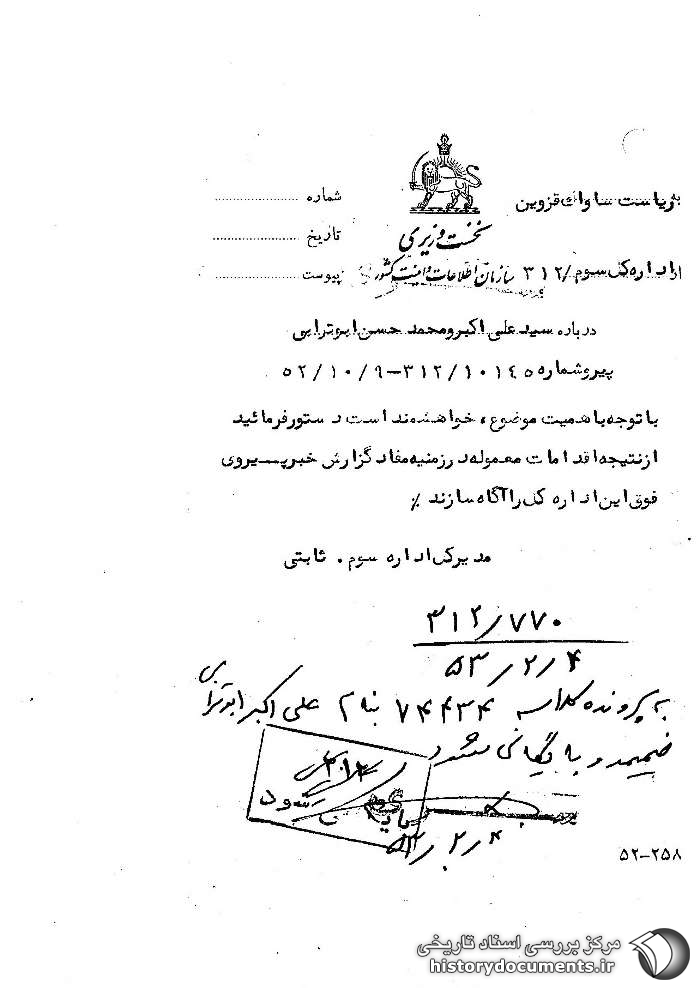 بریاست ساواک قزوین
شماره
نخست وزیری
تاریخ
از اداره کل سوم / ۳۱۲
سازمان اطلاعات و امنیت کشور
پیوست
درباره سید علی اکبر و محمد حسن ابوترابی
پیرو شماره ۳۱۲/۱۰۱۴۵-۵۲/۱۰/۹
با توجه باهمیت موضوع، خواهشمند است دستور فرمائید
از نتیجه اقدامات معموله در زمینه مفاد گزارش خبر پیروی
فوق این اداره کل را آگاه سازند ٪
مدیر کل اداره سوم . ثابتی
۳۱۲/۷۷۰
۵۳/۲/۴
به پرونده کلاسه ۷۴۴۳۴ بنام علی اکبر ابوترابی
ضمیمه و بایگانی شود
۳۱۲
شود
۵۳/۲/۴
۵۲-۲۵۸
مرکز بررسی اسناد تاریخی
historydocuments.ir